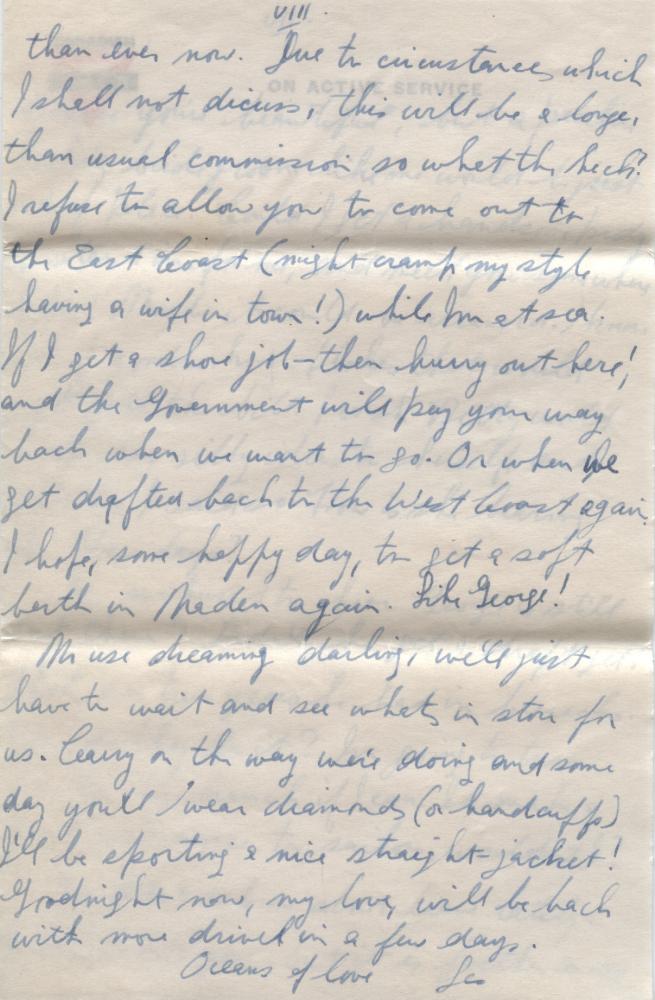 VIII.
than ever now. Due to circumstances which
ON ACTIVE SERVICE
I shall not dicuss, this will be a longer
than usual commission so what the heck?
I refuse to allow you to come out to
the East Coast (might cramp my style
having a wife in town!) while I'm at sea.
If I get a shore job - then hurry out here!
and the Government will pay your way
back when we want to go. Or when we
get drafted back to the West Coast again.
I hope, some happy day, to get a soft
berth in Naden again. Like George!
No use dreaming darling, we'll just
have to wait and see what's in store for
us. Carry on the way we're doing and some
day you'll wear diamonds (or handcuffs)
I'll be sporting a nice straight-jacket!
Goodnight now, my love, will be back
with more drivel in a few days.
Oceans of love